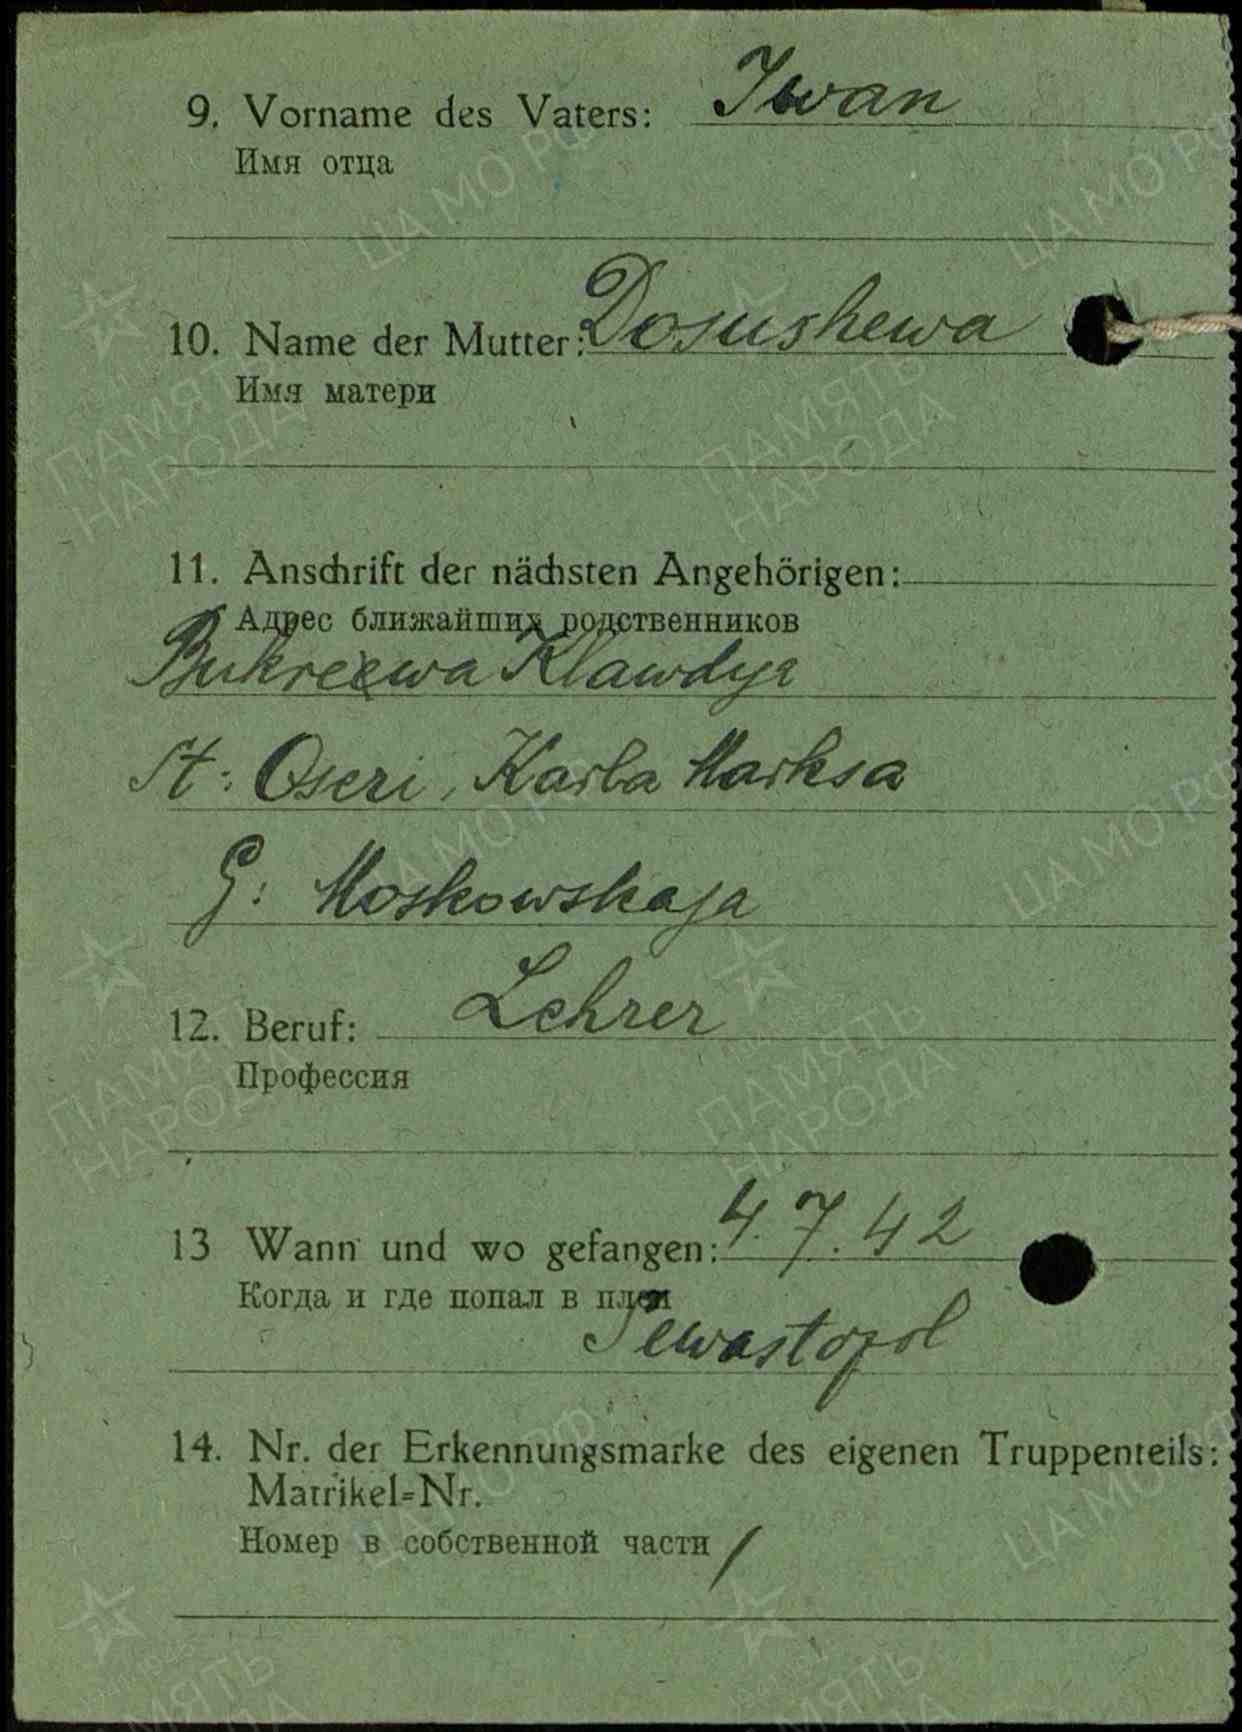 9. Vorname des Vaters: Iwan
Имя отца
10. Name der Mutter: Dosushewa
Имя матери
11. Anschrift der nächsten Angehörigen:
Адрес ближайших родственников
Bukreewa Klawdya
St: Oseri, Karla Marksa
G: Moskowskaja
12. Beruf: Lehrer
Профессия
13 Wann und wo gefangen: 4.7.42
Когда и где попал в плен
Sewastopol
14. Nr. der Erkennungsmarke des eigenen Truppenteils:
Matrikel=Nr.
Номер в собственной части /
ЦА МО РФ
ПАМЯТЬ
НАРОДА